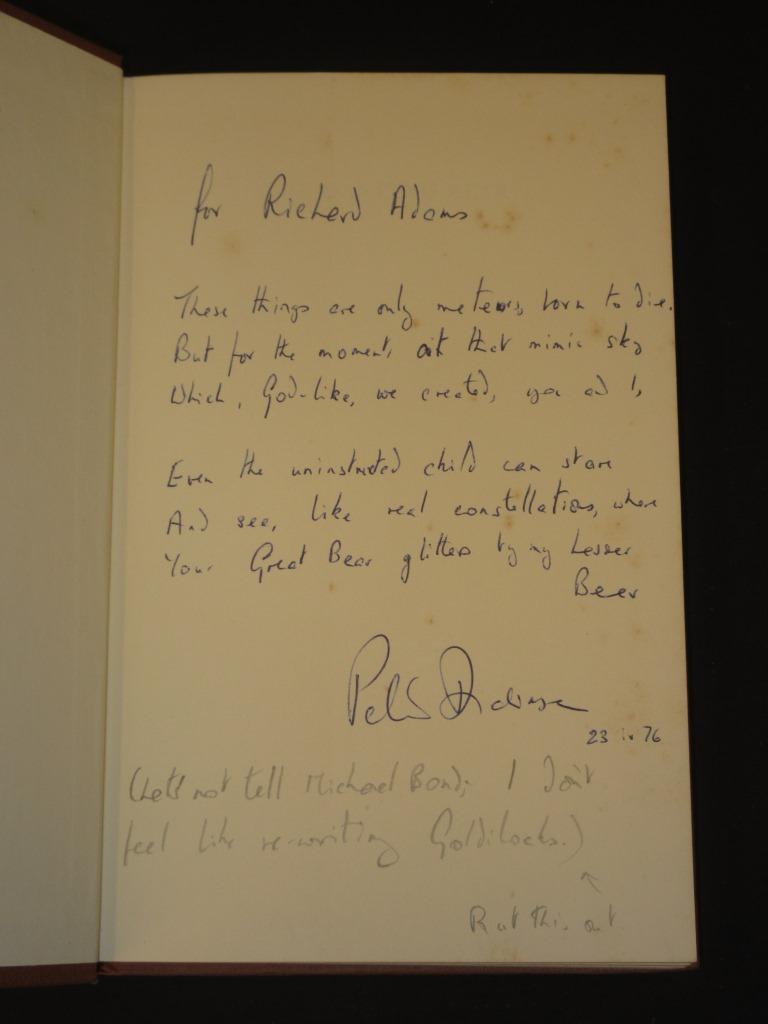 for Richard Adams
These things are only meteors, born to die.
But for the moment, at that mimic sky
Which, God-like, we created, you and I,
Even the uninstructed child can stare
And see, like real constellations, where
Your Great Bear glitters by my Lesser
Bear
Peter Dickinson
23 ix 76
(Let's not tell Michael Bond; I don't
feel like re-writing Goldilocks.)
↑
Rub this out